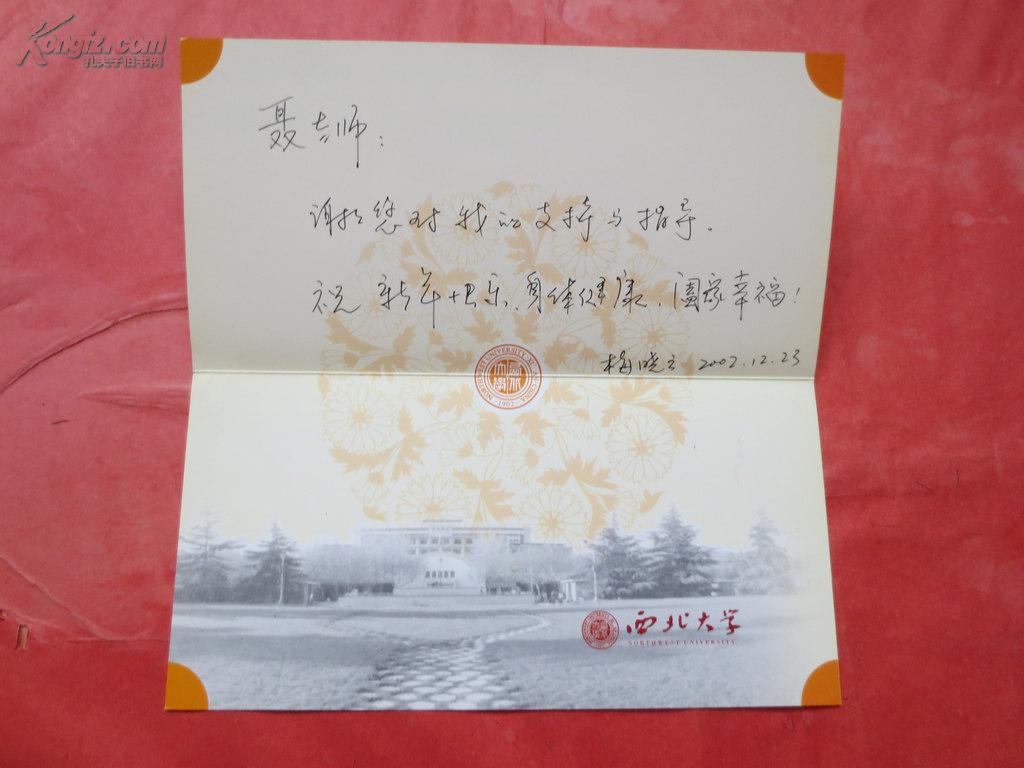 Kongfz.com
孔夫子旧书网
聂老师：
谢谢您对我的支持与指导.
祝 新年快乐、身体健康、阖家幸福！
梅晓云 2002.12.23
NORTHWEST UNIVERSITY XI'AN CHINA
1902
西北大学
NORTHWEST UNIVERSITY